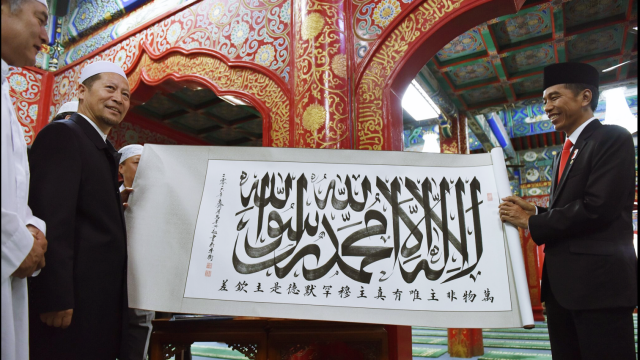 لا إله إلا الله محمد رسول الله
萬物非主唯有真主穆罕默德是主欽差